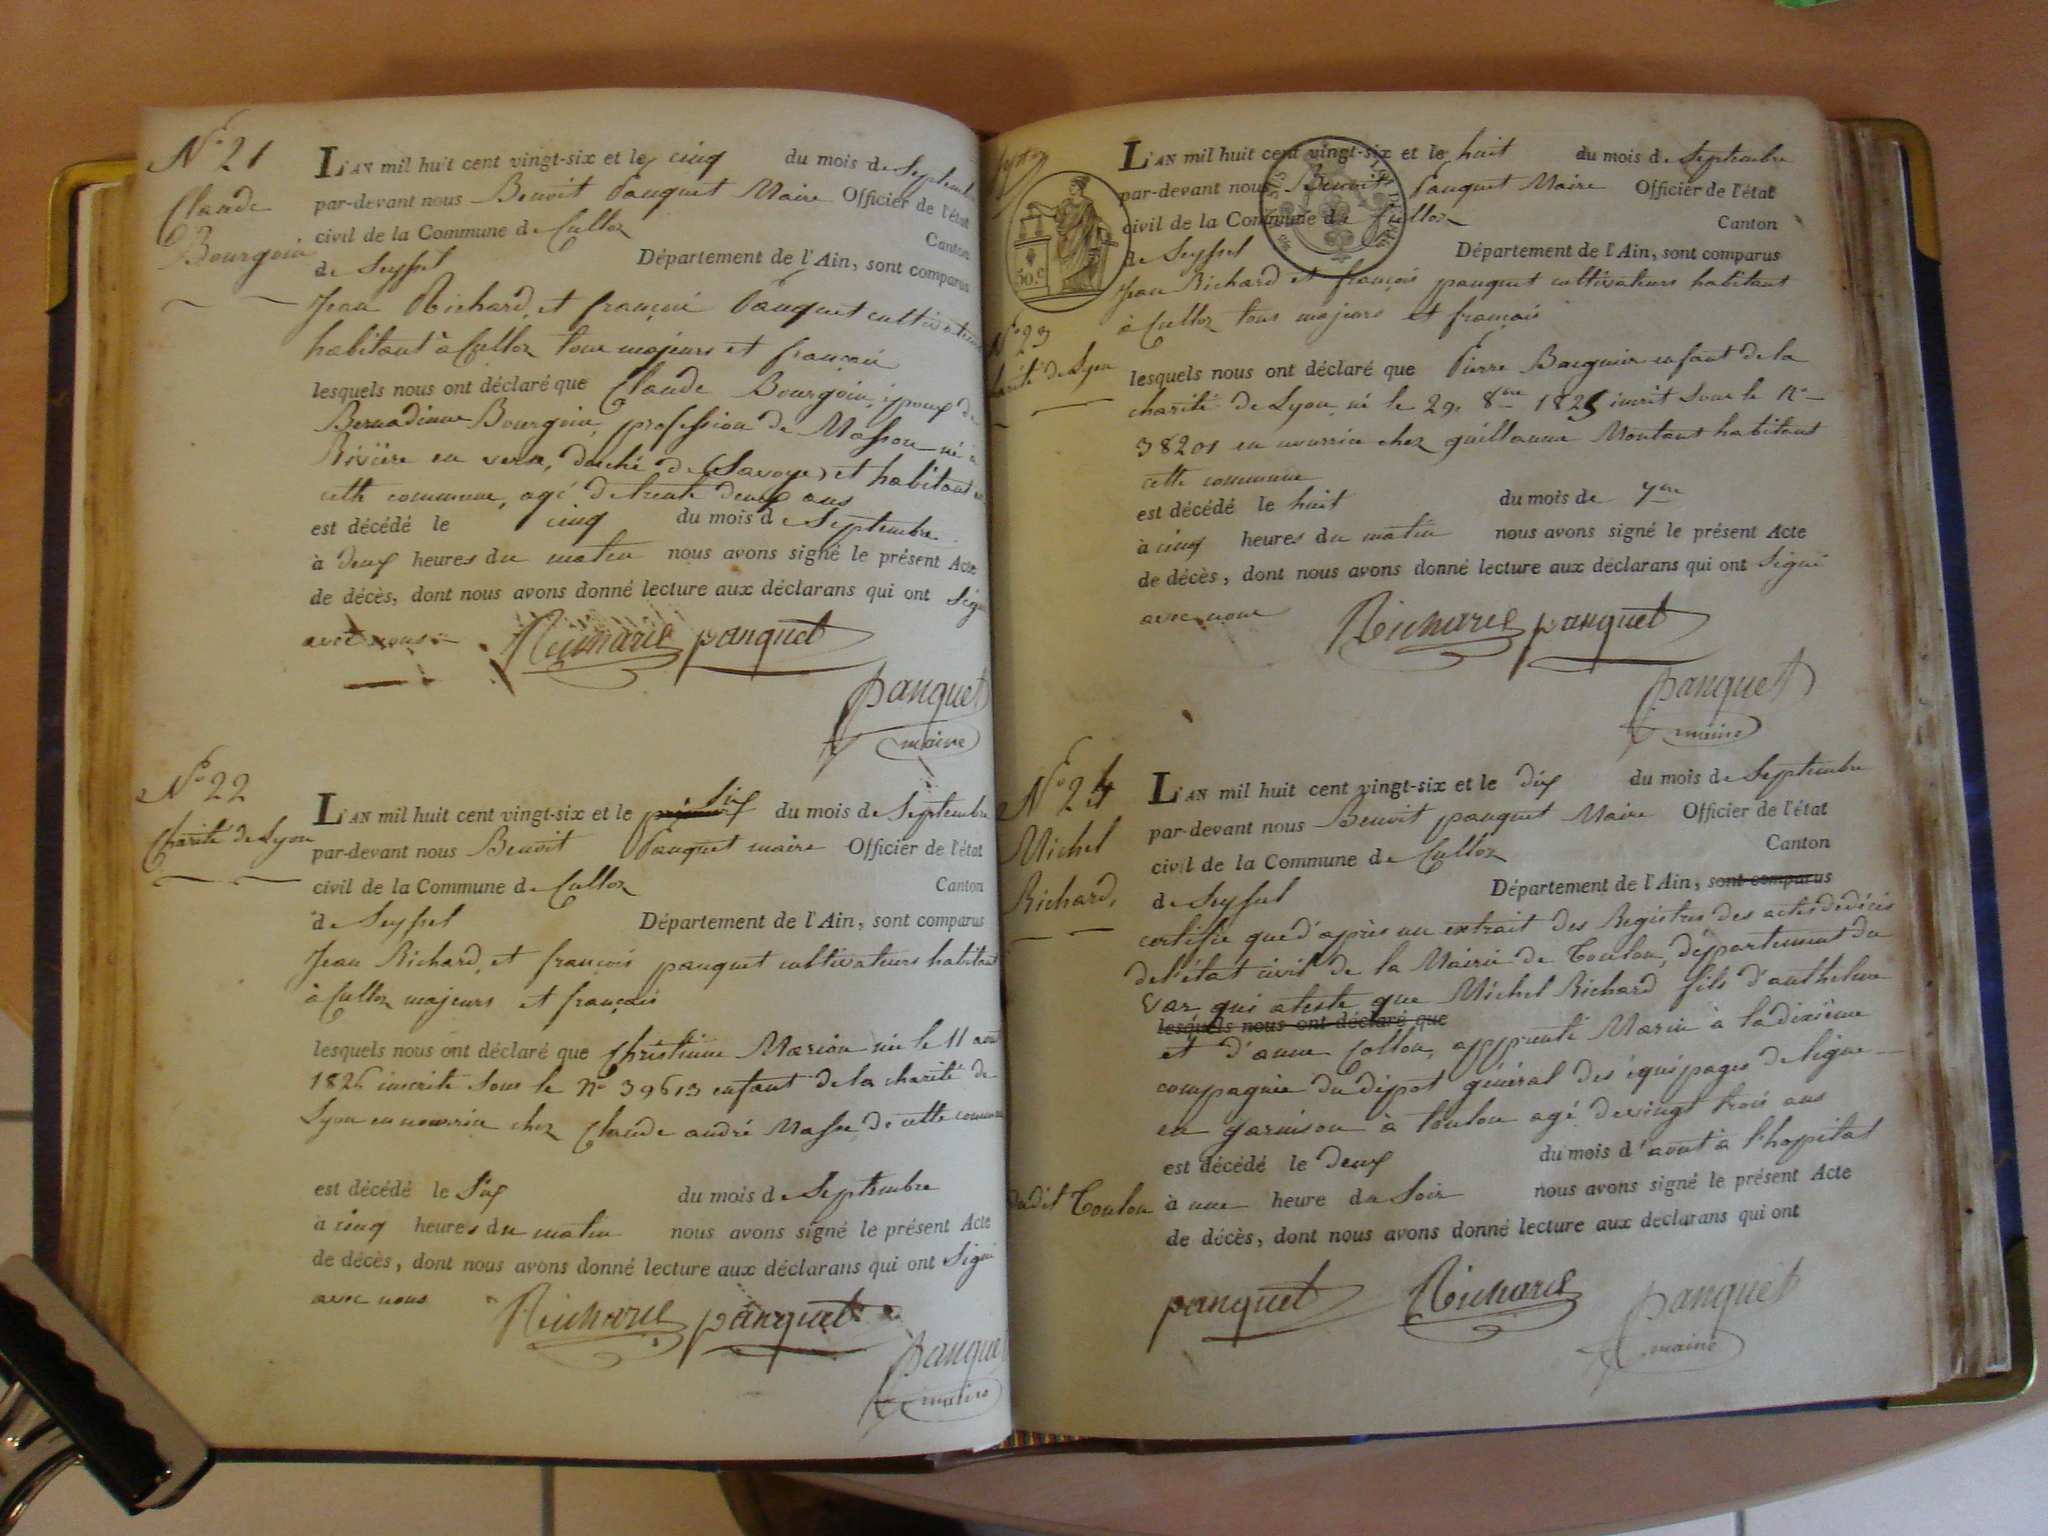 N° 21
Claude
Bourgoin
L'AN mil huit cent vingt-six et le cinq du mois de Septembre
par-devant nous Benoit Pauquet Maire Officier de l'état
civil de la Commune de Culloz Canton
de Seyssel Département de l'Ain, sont comparus
Jean Richard, et françois Pauquet cultivateurs
habitant à Culloz tous majeurs et français
lesquels nous ont déclaré que Claude Bourgoin, époux de
Bernadinne Bourgoin, profession de Masson né à
Rivière en verse, duché de (Savoye) et habitant en
cette commune, agé de trente deux ans
est décédé le cinq du mois de Septembre
à deux heures du matin nous avons signé le présent Acte
de décès, dont nous avons donné lecture aux déclarans qui ont Signé
avec nous
Richard pauquet
pauquet
maire
N° 22
Charité de Lyon
L'AN mil huit cent vingt-six et le Six du mois de Septembre
par-devant nous Benoit Pauquet maire Officier de l'état
civil de la Commune de Culloz Canton
de Seyssel Département de l'Ain, sont comparus
Jean Richard, et francois pauquet cultivateurs habitant
à Culloz majeurs et français
lesquels nous ont déclaré que Christinne Marion née le 11 aout
1826 inscrite Sous le N° 39613 enfant de la charité de
Lyon en nourrice chez Claude andré Masse de cette commune
est décédé le Six du mois de Septembre
à cinq heures du matin nous avons signé le présent Acte
de décès, dont nous avons donné lecture aux déclarans qui ont Signé
avec nous
Richard pauquet
pauquet
maire
50 c
N° 23
charité de Lyon
L'AN mil huit cent vingt-six et le huit du mois de Septembre
par-devant nous Benoit Pauquet Maire Officier de l'état
civil de la Commune de Culloz Canton
de Seyssel Département de l'Ain, sont comparus
Jean Richard et françois pauquet cultivateurs habitant
à Culloz tous majeurs et français
lesquels nous ont déclaré que Pierre enfant de la
charité de Lyon, né le 29 8bre 1825 inscrit Sous le N°
38201 en nourrice chez guillaume Montant habitant
cette commune
est décédé le huit du mois de 7bre
à cinq heures du matin nous avons signé le présent Acte
de décès, dont nous avons donné lecture aux déclarans qui ont Signé
avec nous
Richard pauquet
pauquet
maire
N° 24
Michel
Richard,
L'AN mil huit cent vingt-six et le dix du mois de Septembre
par-devant nous Benoit pauquet Maire Officier de l'état
civil de la Commune de Culloz Canton
de Seyssel Département de l'Ain, sont comparus
certifie que d'après un extrait des Registres des actes de décès
de l'état civil de la Mairie de Toulon, département du
Var qui ateste que Michel Richard fils d'anthelme
lesquels nous ont déclaré que
et d'anne Collon, apprenti Marin à la dixième
compagnie du dépot général des équipages de ligne
en garnison à toulon agé de vingt trois ans
est décédé le deux du mois d'aout à l'hopital
dudit Toulon à une heure du Soir nous avons signé le présent Acte
de décès, dont nous avons donné lecture aux déclarans qui ont
pauquet Richard pauquet
maire